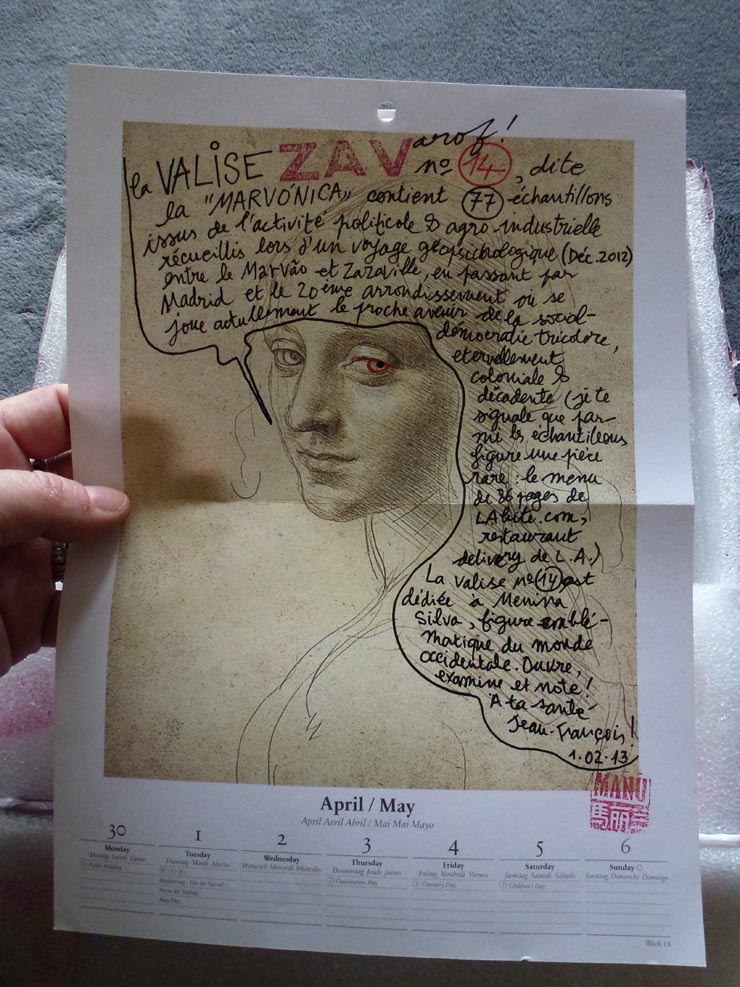 la VALISE ZAV arof!
nº 14, dite
la "MARVÓNICA" contient 77 échantillons
issus de l'activité politicole & agro-industrielle
récueillis lors d'un voyage géopsichologique (Déc. 2012)
entre le Marvão et Zazaville, en passant par
Madrid et le 20ème arrondissement où se
joue actullement le proche avenir de la social-
démocratie tricolore,
eternellement
coloniale &
décadente (je te
signale que par-
mi les échantillons
figure une pièce
rare: le menu
de 86 pages de
LAbite.com,
restaurant
delivery de L.A.)
La valise nº 14 est
dédiée à Menina
Silva, figure emblé-
matique du monde
occidentale. Ouvre,
examine et note!
A ta santé
Jean-François!
1.02.13
MANU
April / May
April Avril Abril / Mai Mai Mayo
30 1 2 3 4 5 6
Monday Tuesday Wednesday Thursday Friday Saturday Sunday
Montag Lundi Lunes Dienstag Mardi Martes Mittwoch Mercredi Miércoles Donnerstag Jeudi Jueves Freitag Vendredi Viernes Samstag Samedi Sábado Sonntag Dimanche Domingo
Public Holiday Constitution Day Greenery Day Children's Day
May Day
Week 18